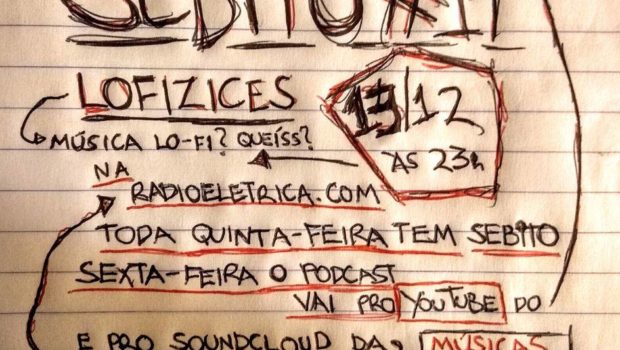 SEBITO
LOFIZICES
13/12
MÚSICA LO-FI? QUEÍSS?
ÀS 23h
NA
RADIOELETRICA.COM
TODA QUINTA-FEIRA TEM SEBITO
SEXTA-FEIRA O PODCAST
VAI PRO YOUTUBE DO
E PRO SOUNDCLOUD DAS MÚSICAS